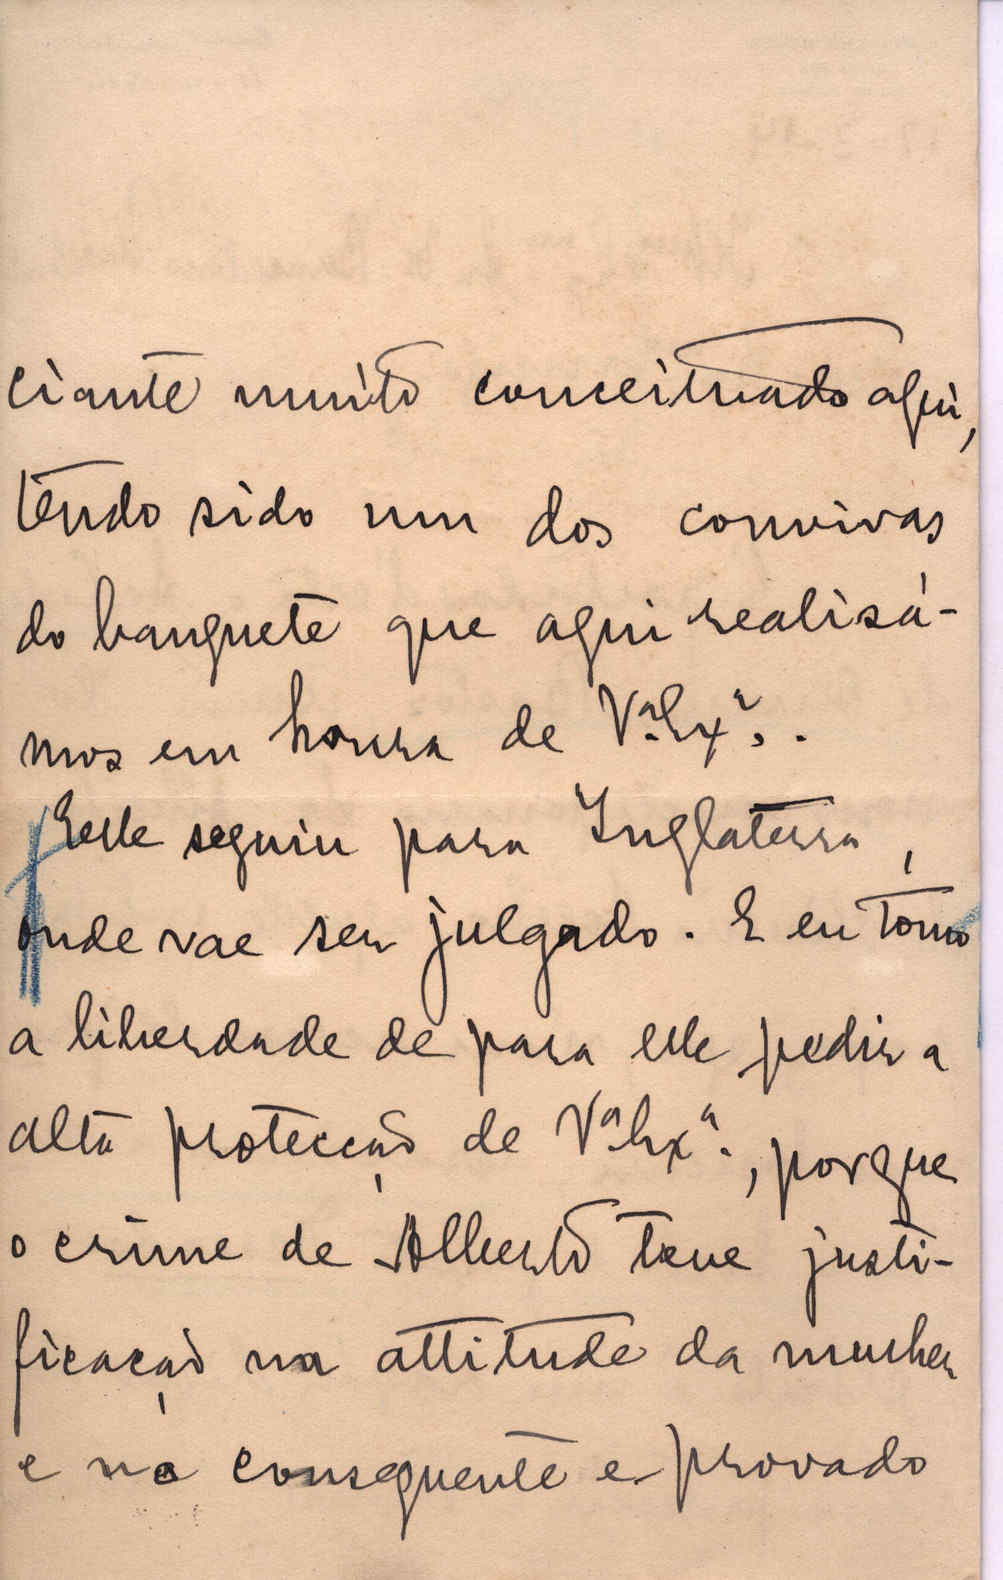 ciante muito conceituado aqui,
tendo sido um dos convivas
do banquete que aqui realisá-
mos em honra de Vª. Exª..
Elle seguiu para Inglaterra,
onde vae ser julgado. E eu tómo
a liberdade de para elle pedir a
alta protecção de Vª Exª., porque
o crime de Alberto teve justi-
ficação na attitude da mulher
e no consequente e provado